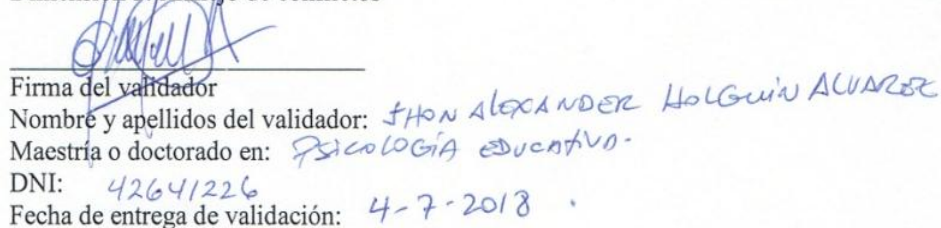 Firma del validador
Nombre y apellidos del validador: JHON ALEXANDER HOLGUIN ALVAREZ
Maestría o doctorado en: PSICOLOGÍA EDUCATIVA.
DNI: 42641226
Fecha de entrega de validación: 4-7-2018 .